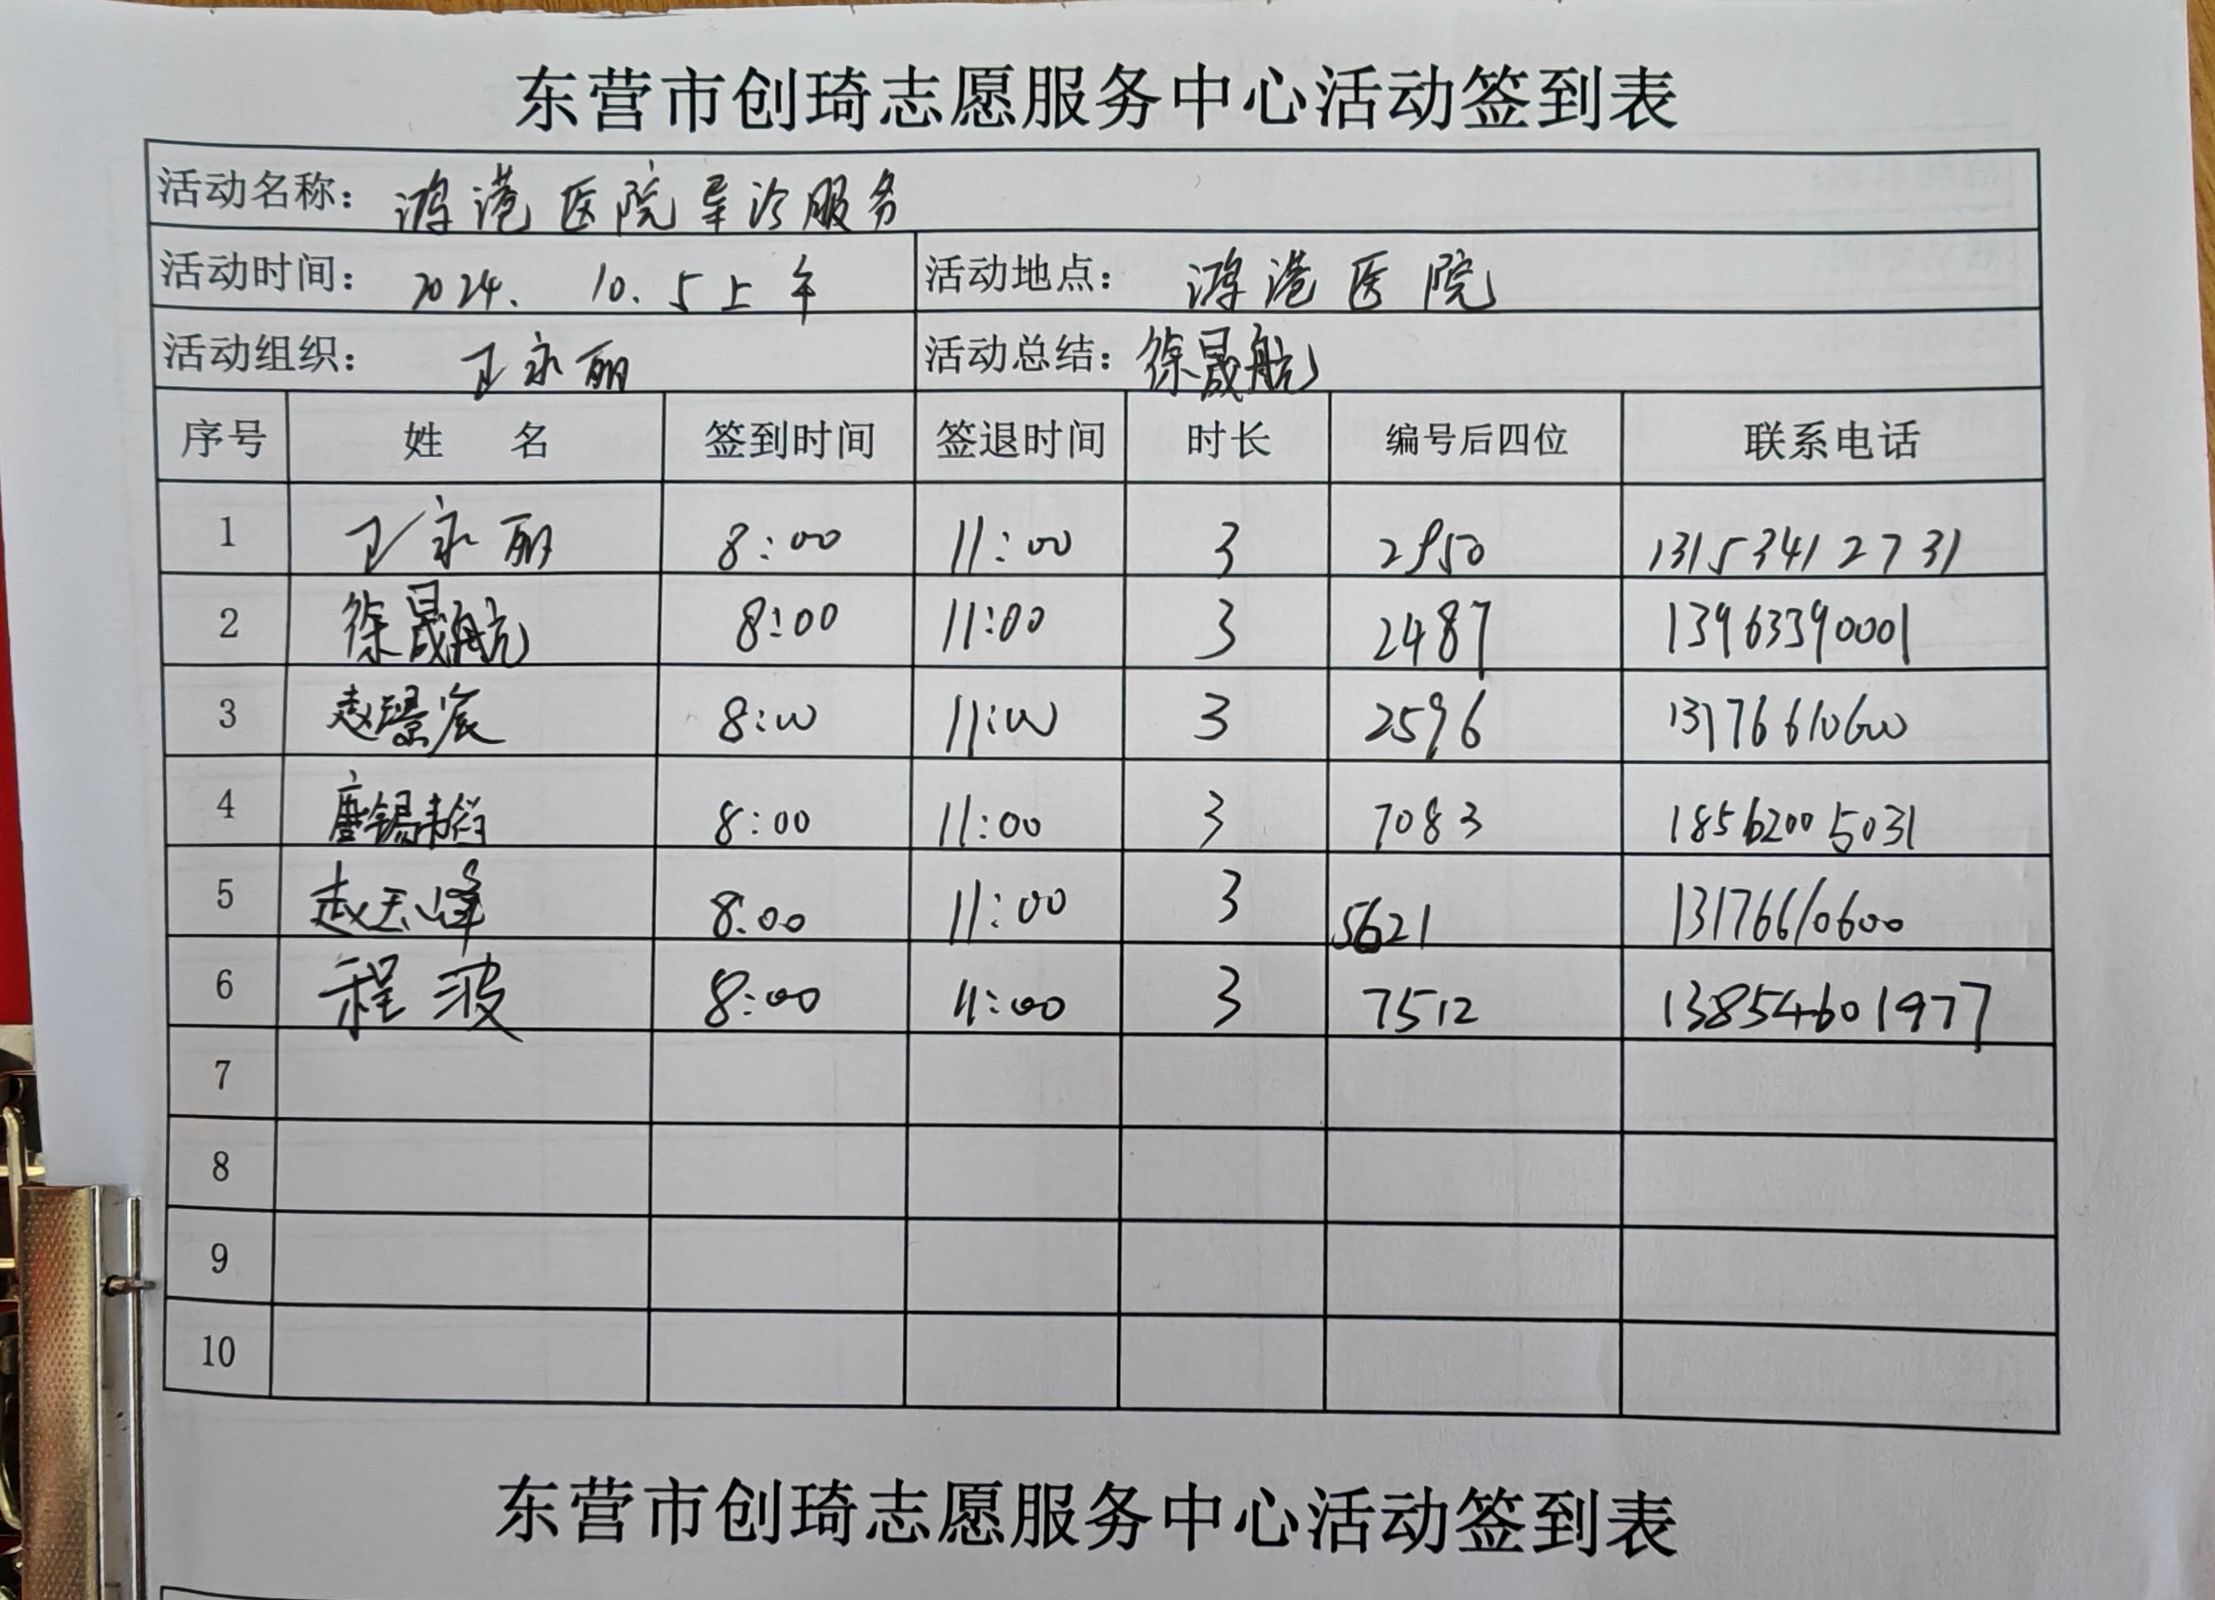 东营市创琦志愿服务中心活动签到表
活动名称： 鸿港医院导诊服务
活动时间： 2024. 10. 5上午 活动地点： 鸿港医院
活动组织： 卫永丽 活动总结： 徐晟航
序号 姓 名 签到时间 签退时间 时长 编号后四位 联系电话
1 卫永丽 8:00 11:00 3 2950 13153412731
2 徐晟航 8:00 11:00 3 2487 13963390001
3 赵璟宸 8:00 11:00 3 2596 13176610600
4 唐锡 8:00 11:00 3 7083 18562005031
5 赵玉峰 8:00 11:00 3 5621 13176610600
6 程波 8:00 11:00 3 7512 13854601977
7
8
9
10
东营市创琦志愿服务中心活动签到表